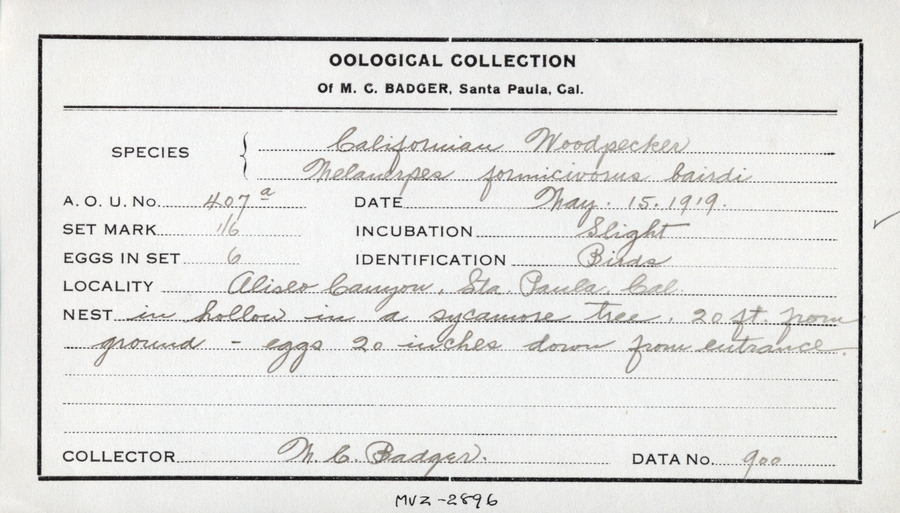 OOLOGICAL COLLECTION
Of M. C. BADGER, Santa Paula, Cal.
SPECIES { Californian Woodpecker
Melanerpes formicivorus bairdi
A. O. U. No. 407a DATE May. 15. 1919.
SET MARK 1/6 INCUBATION Slight
EGGS IN SET 6 IDENTIFICATION Birds
LOCALITY Aliseo Canyon, Sta. Paula. Cal.
NEST in hollow in a sycamore tree. 20 ft. from
ground - eggs 20 inches down from entrance.
COLLECTOR M. C. Badger. DATA No. 900
MVZ-2896